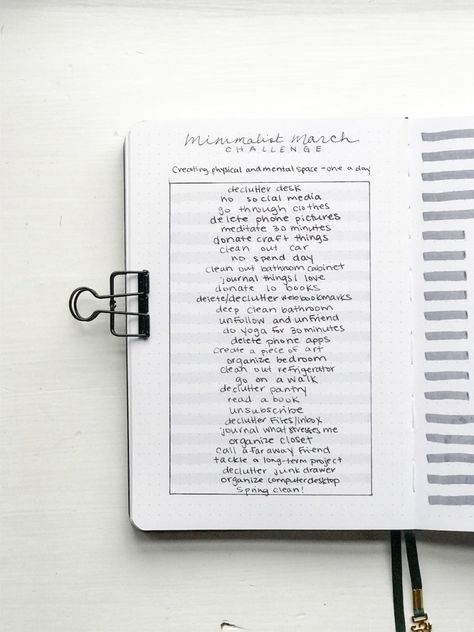 Minimalist March
CHALLENGE
Creating physical and mental space - one a day
declutter desk
no social media
go through clothes
delete phone pictures
meditate 30 minutes
donate craft things
clean out car
no spend day
clean out bathroom cabinet
journal things I love
donate 10 books
delete/declutter web bookmarks
deep clean bathroom
unfollow and unfriend
do yoga for 30 minutes
delete phone apps
create a piece of art
organize bedroom
clean out refrigerator
go on a walk
declutter pantry
read a book
unsubscribe
declutter files/inbox
journal what stresses me
organize closet
call a far away friend
tackle a long-term project
declutter junk drawer
organize computer desktop
Spring clean!